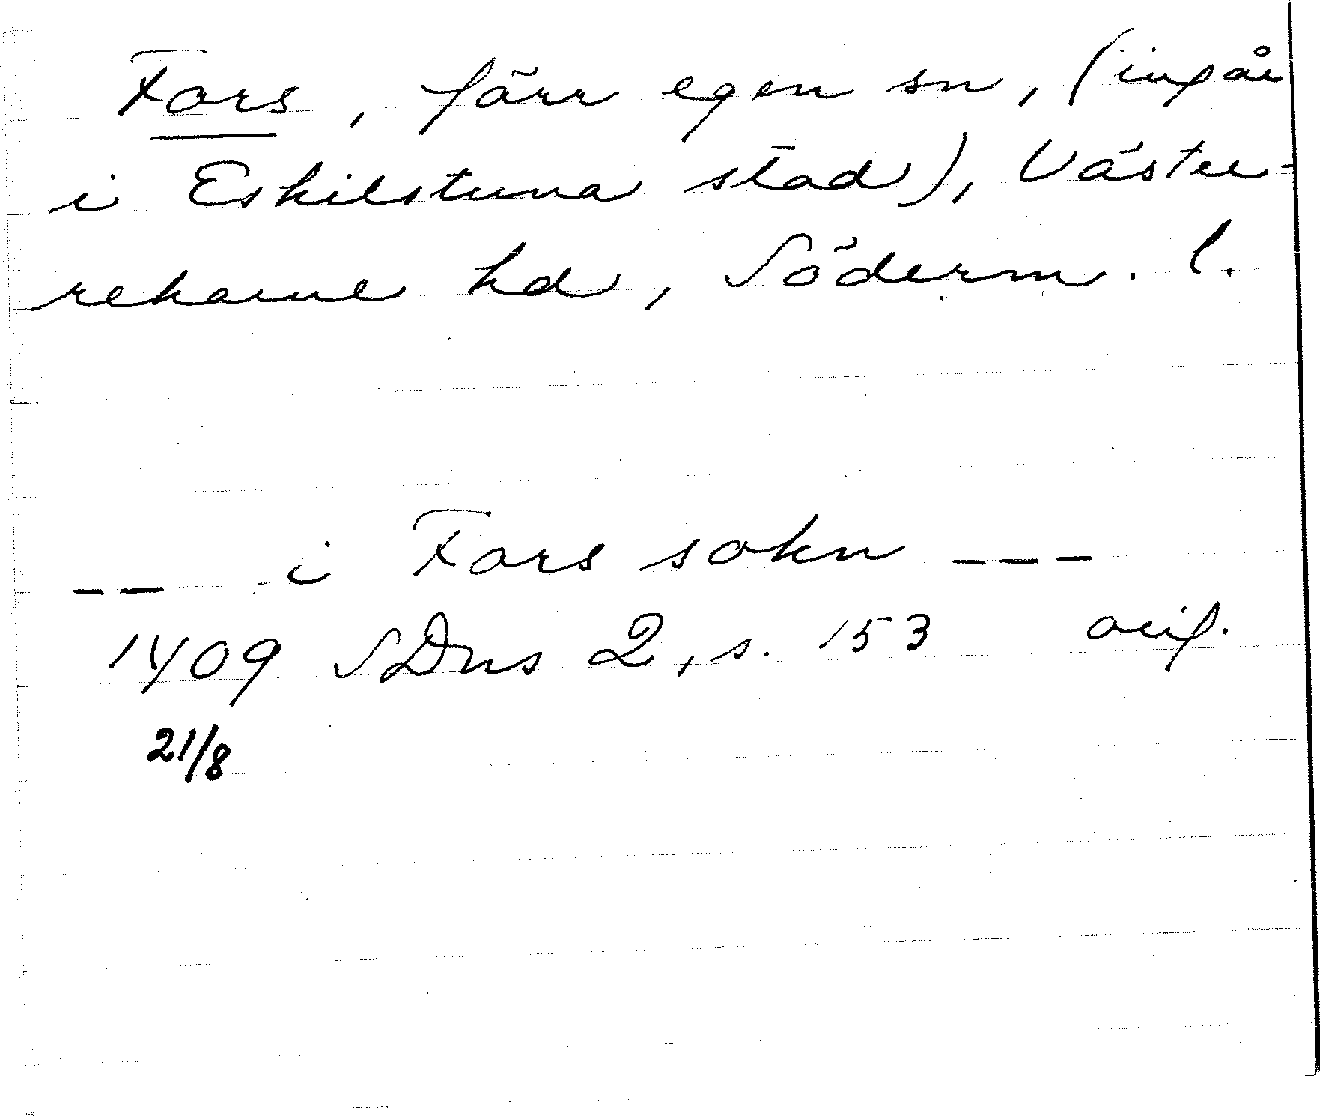 Fors, förr egen sn, (ingår
i Eskilstuna stad), Väster-
rekarne hd, Söderm. l.
-- i Fors sokn ---
1409 SDns 2, s. 153 orig.
21/8